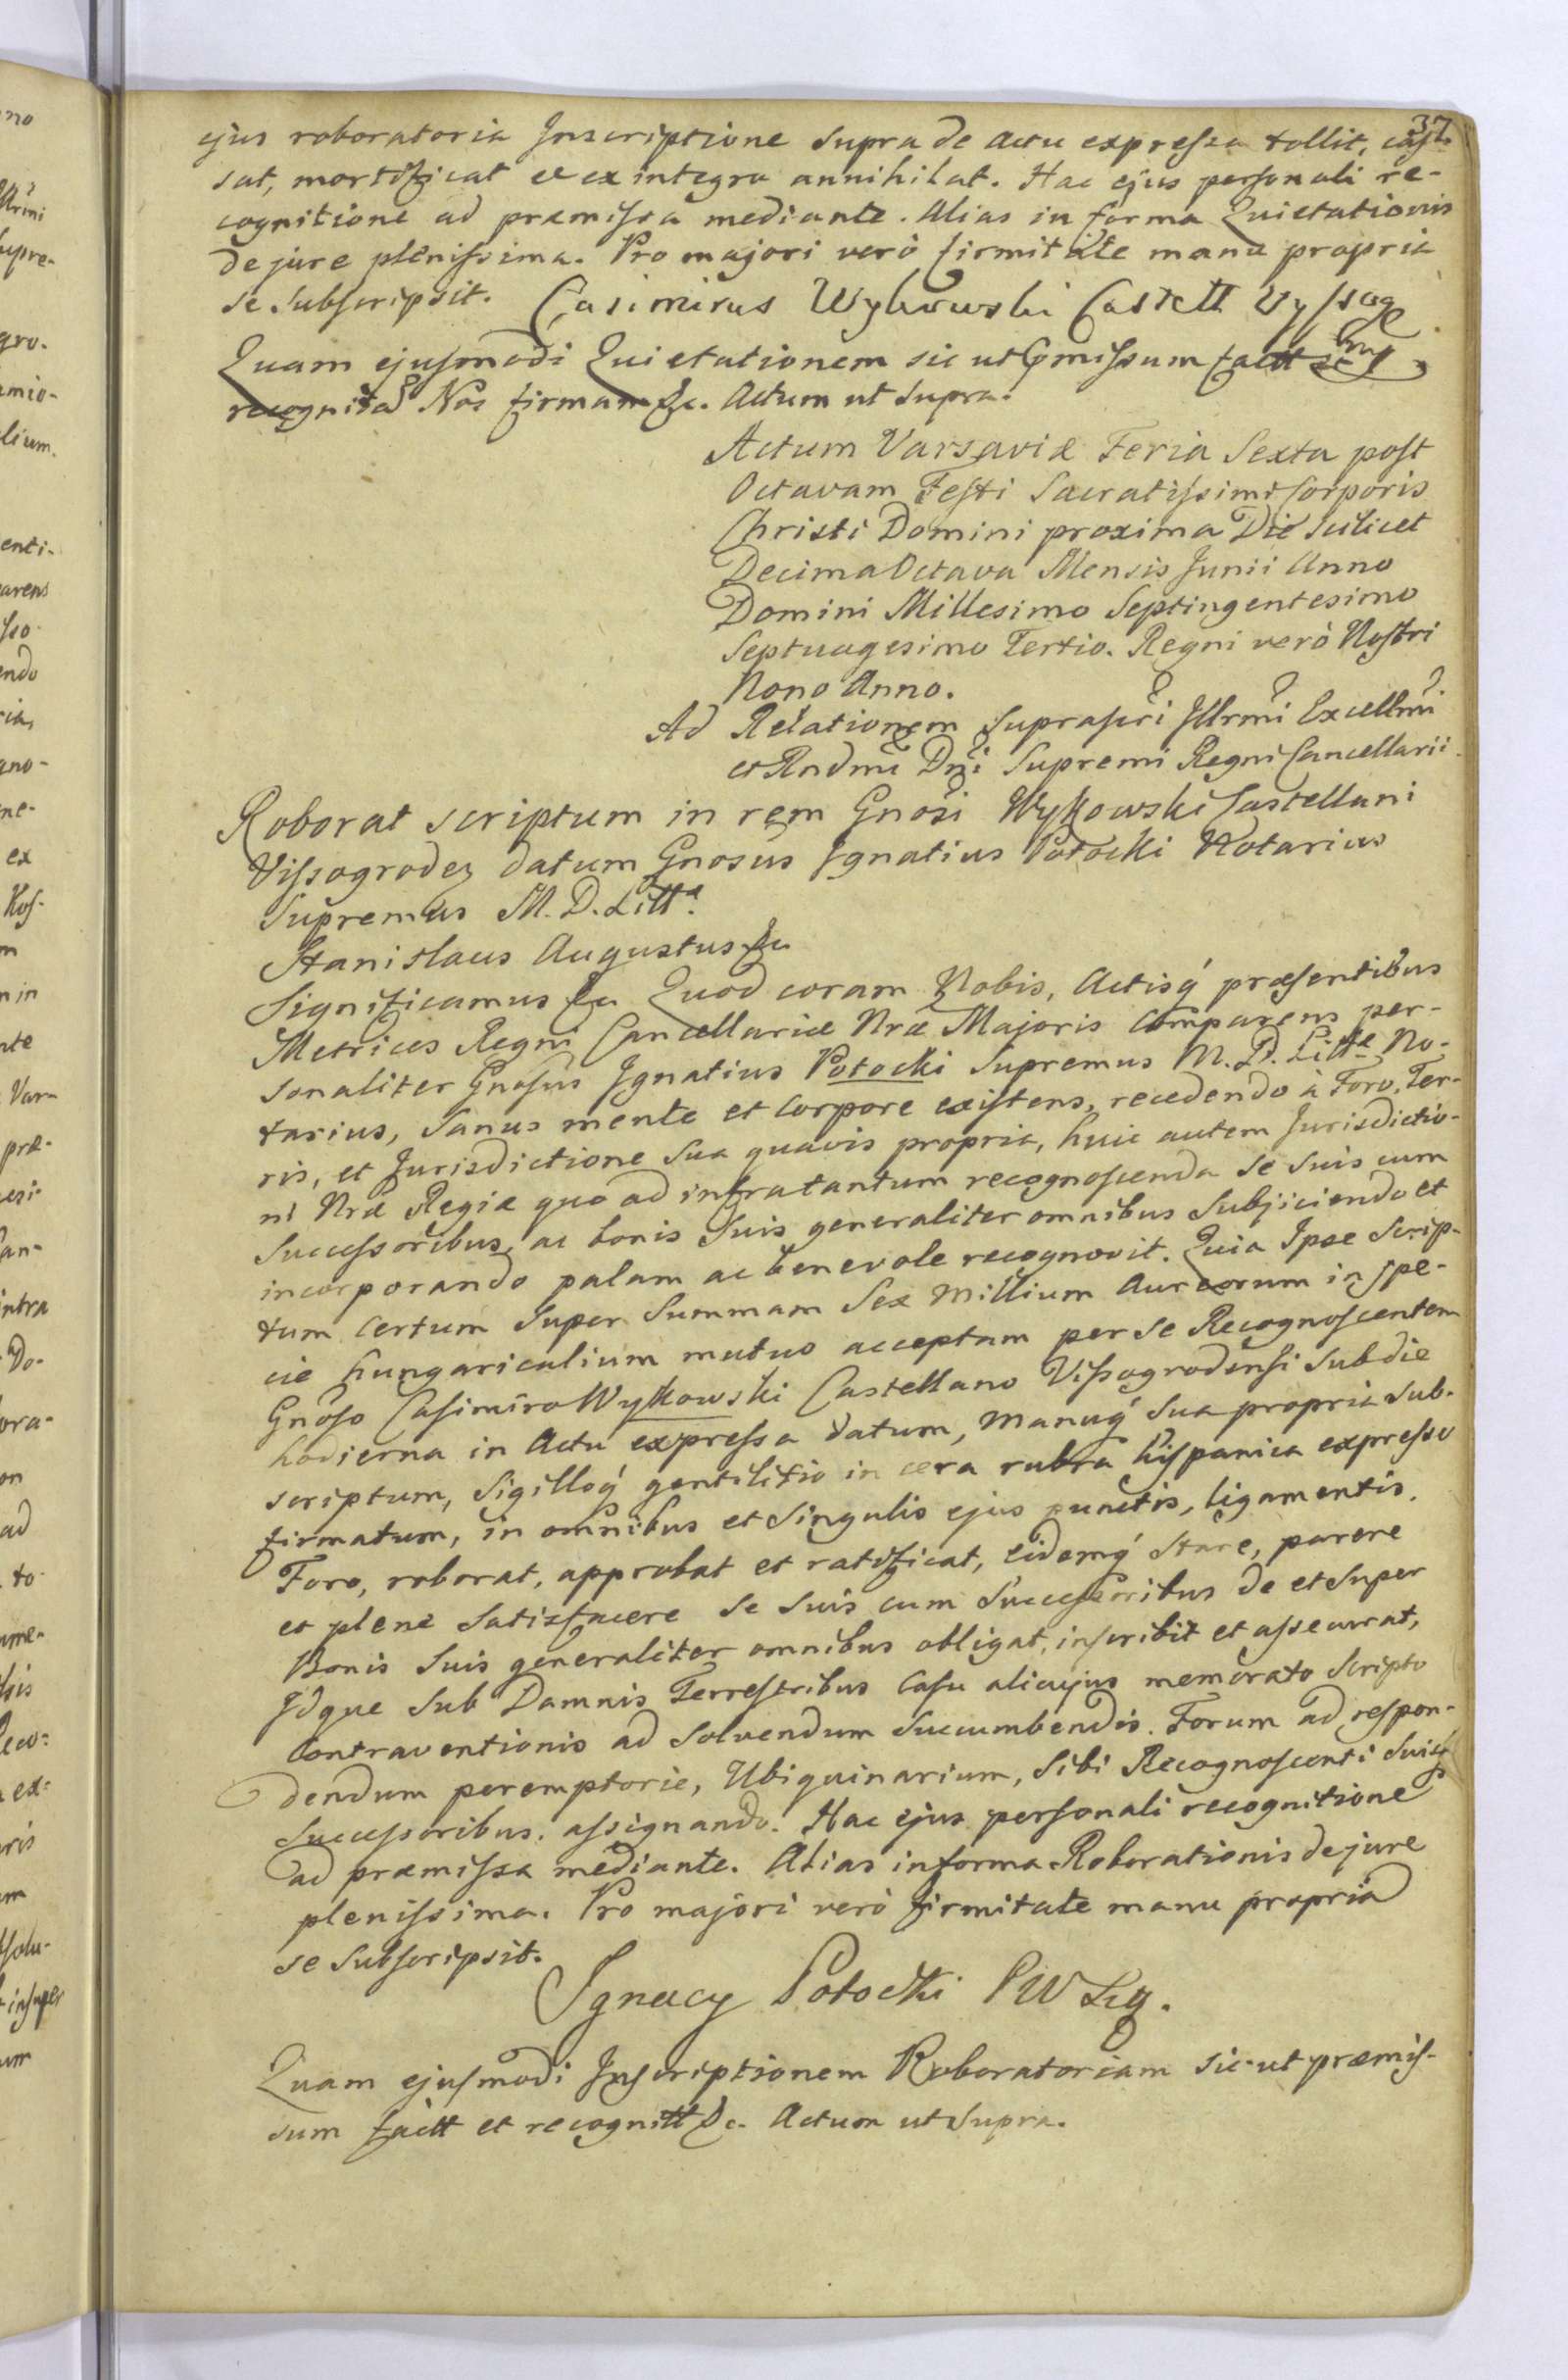 37
ejus roboratoria Inscriptione supra de actu expressa tollit, cas-
sat, mortificat et ex integro annihilat. Hac ejus personali re-
cognitione ad præmissa mediante. Alias in forma Quietationis
de jure plenissima. Pro majori verò firmitate manu propria
se subscripsit. Casimirus Wykowski Castell Wyssog
Quam ejusmodi Quietationem sic ut præmissum factt
recognita Nos firmam &c. Actum ut supra.
Actum Varsaviæ Feria Sexta post
Octavam Festi Sacratissimi Corporis
Christi Domini proxima Die scilicet
Decima Octava Mensis Junii Anno
Domini Millesimo Septingentesimo
Septuagesimo Tertio. Regni verò Nostri
Nono Anno.
Ad Relationem suprascri Illrmi Excellmi
et Rndmi Dni Supremi Regni Cancellarii
Roborat scriptum in rem Gnosi Wykowski Castellani
Vissogroden datum Gnosus Ignatius Potocki Notarius
Supremus M. D. Litta.
Stanislaus Augustus &c
Significamus &c Quod coram Nobis, Actisq́ præsentibus
Metrices Regni Cancellariæ Nræ Majoris Comparens per-
sonaliter Gnosus Ignatius Potocki Supremus M. D. Littæ No-
tarius, Sanus mente et Corpore existens, recedendo à Foro, Ter-
ris, et Jurisdictione sua quavis propria, huic autem Jurisdictio-
ni Nræ Regiæ quo ad infra tantum recognoscenda se suis cum
Successoribus, ac bonis suis generaliter omnibus subjiciendo et
incorporando palam ac benevole recognovit. Quia Ipse scrip-
tum certum super Summam Sex Millium Aureorum in spe-
cie hungaricalium mutuo acceptam per se Recognoscentem
Gnoso Casimiro Wykowski Castellano Vissogrodensi sub die
hodierna in Actu expressa datum, Manuq́ sua propria sub-
scriptum, Sigilloq́ gentilitio in cera rubra hispanica expresso
firmatum, in omnibus et singulis ejus punctis, ligamentis,
Foro, roborat, approbat et ratificat, eidemq́ stare, parere
et plene satisfacere se suis cum Successoribus de et super
Bonis suis generaliter omnibus obligat, inscribit et assecurat,
Idque sub Damnis Terrestribus Casu alicujus memorato scripto
Contraventionis ad solvendum succumbendis. Forum ad respon-
dendum peremptorie, Ubiquinarium, sibi Recognoscenti suisq́
Successoribus, assignando. Hac ejus personali recognitione
ad præmissa mediante. Alias in forma Roborationis de jure
plenissima. Pro majori verò firmitate manu propria
se subscripsit.
Ignacy Potocki PW Lig.
Quam ejusmodi Inscriptionem Roboratoriam sic ut præmis-
sum factt et recognitt &c. Actum ut supra.